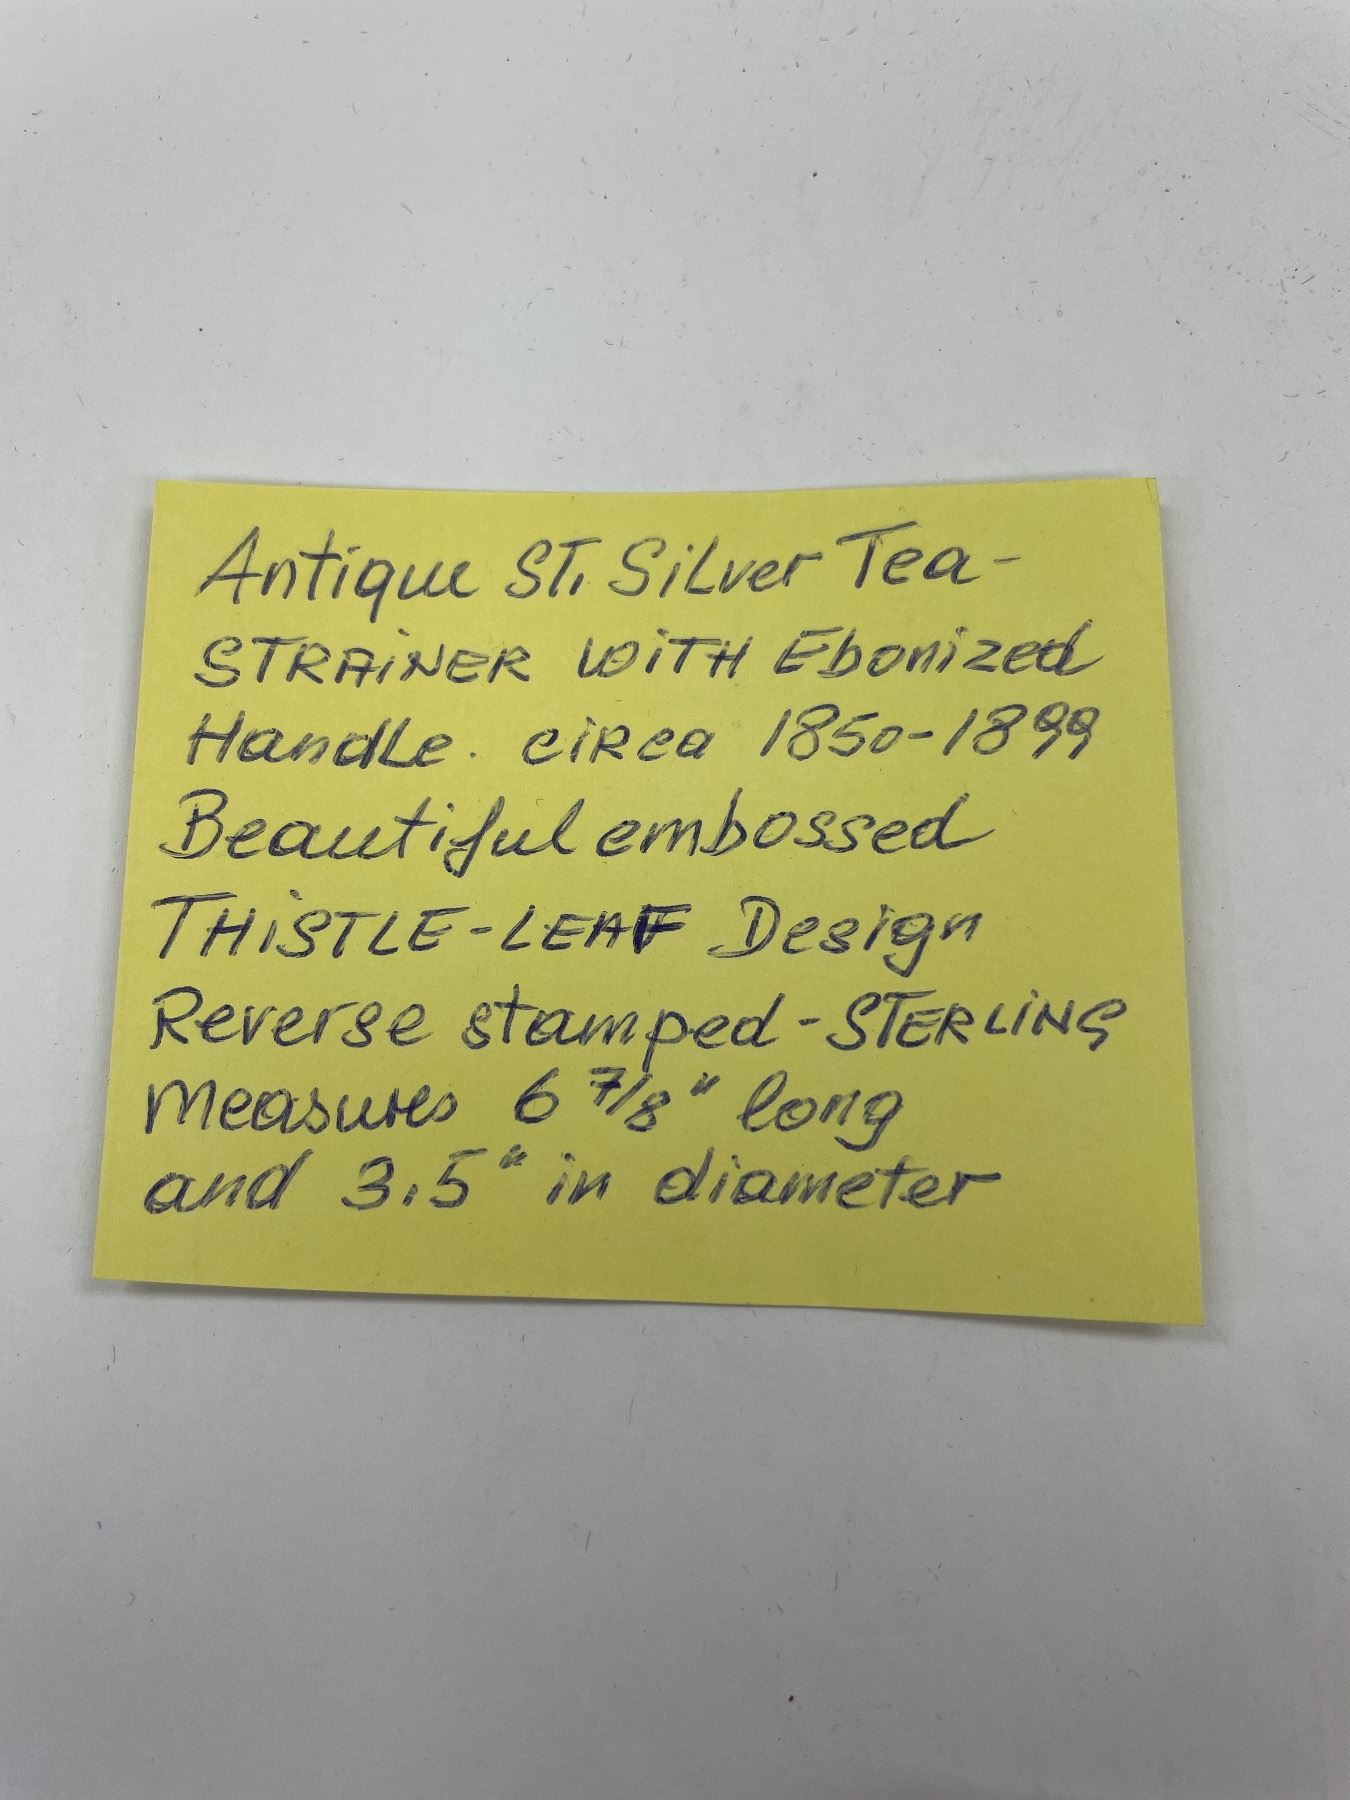 Antique ST. Silver Tea-
STRAINER WITH Ebonized
Handle. circa 1850-1899
Beautiful embossed
THISTLE-LEAF Design
Reverse stamped-STERLING
Measures 6 7/8" long
and 3.5" in diameter